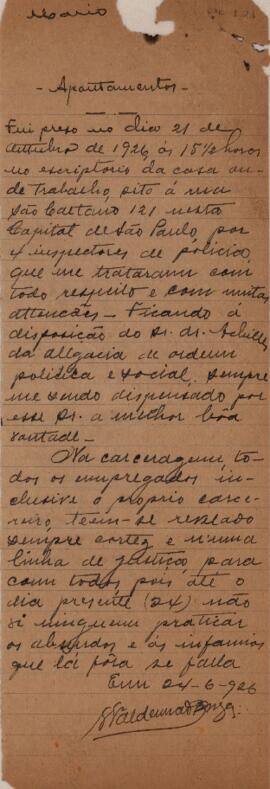 Mario
- Apontamentos -
Fui preso no dia 21 de
de 1926, ás 15½ horas
no escriptorio da casa on-
de trabalho, sito á rua
São Caetano 121 nesta
Capital de São Paulo, por
4 inspectores de policia,
que me trataram com
todo respeito e com muitas
attenções - Ficando á
disposição do Sr. dr. Achilles
da dlegacia de ordem
politica e social, sempre
me sendo dispensado por
esse Sr. a melhor bôa
vontade -
Na carceragem, to-
dos os empregados in-
clusive o proprio carce-
reiro, teem-se revelado
sempre cortez e n'uma
linha de justiça para
com todos pois até o
dia presente (24) não
vi ninguem praticar
os absurdos e ás infamias
que lá fóra se falla
Em 24-6-926